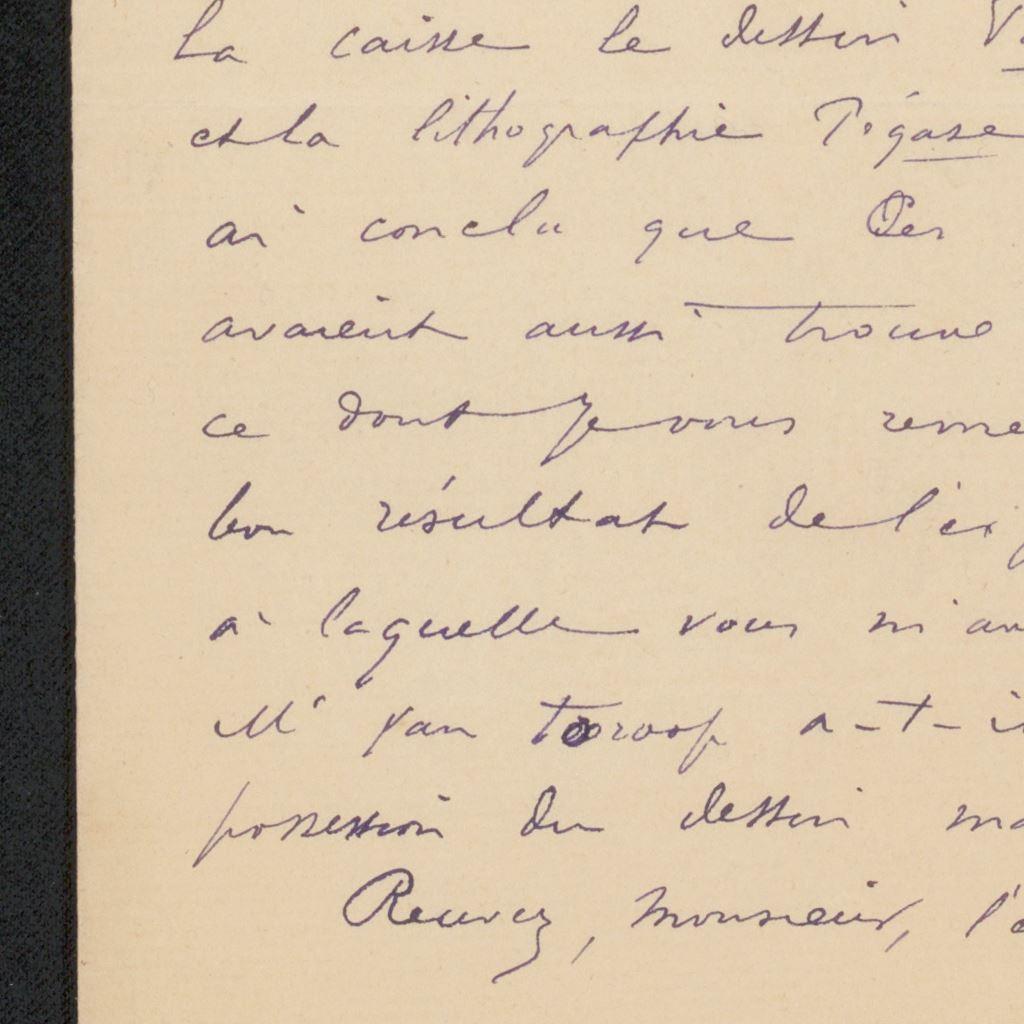 La caisse le dessin
et la lithographie Pégase
ai conclu que Ces
avaient aussi trouvé
ce dont je vous reme
bon résultat de l'ex
à laquelle vous m'av
Mr van Tooroop a-t-i
possession du dessin ma
Recevez, Monsieur, l'